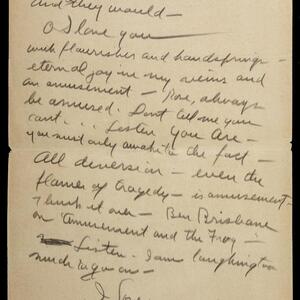 and they would —
O I love you
with flourishes and handsprings —
eternal joy in my veins and
an amusement — Rose, always
be amused. Dont tell me you
cant... Listen You Are —
you must only awake to the fact —
All diversion — even the
flames of tragedy — is amusement —
Think it over — Ben Brisbane
on "Amusement and the Frog" —
Listen — I am laughing too
much to go on —
I